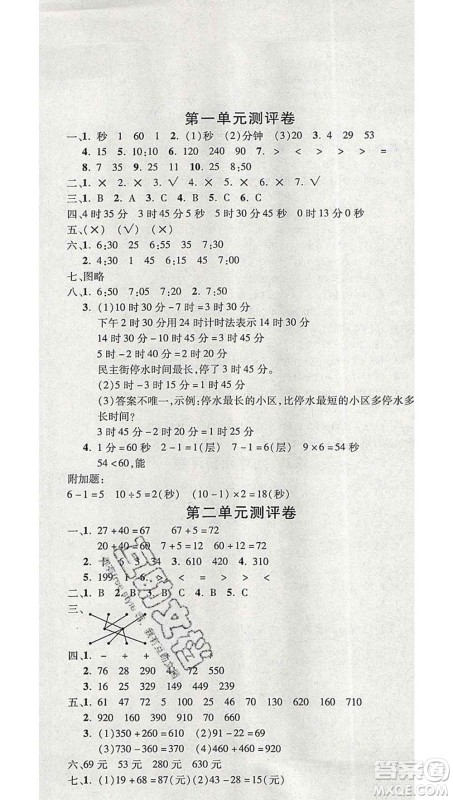 第一单元测评卷
一、1. 秒 1 60 1 2. (1)秒 (2)分钟 (3)20 3. 4 29 53
4. 15 5. 10:50 6. 120 240 90 7. > < > > > =
8. 7 35 9. 25
二、1. × 2. × 3. √ 4. × 5. √
三、1. B 2. A 3. B 4. C 5. C
四、4时35分 2时45分 5时30分 0时13分0秒
五、(×) (√) (√)
六、1. 6:30 25 6:55 35 7:30
2. 4:30 45 5:15 45 6:00
七、图略
八、1. 6:50 7:05 2. 7:20 8:50
3. (1)10时30分-7时=3时30分
下午2时30分用24时计时法表示14时30分
14时30分-10时40分=3时50分
5时-2时40分=2时20分
民主街停水时间最长,停了3时45分。
(2)5时-45分=4时15分
(3)答案不唯一,示例:停水最长的小区,比停水最短的小区多停水多
长时间?
4. 1分=60秒 2-1=1(层) 7-1=6(层) 9×6=54秒
54<60,能
附加题:
6-1=5 10÷5=2(秒) 10-1=9 9×2=18(秒)
第二单元测评卷
一、1. 27+40=67 67+5=72
20+40=60 7+5=12 60+12=72
2. 78 34 3. 610 420 4. 310
5. 199
二、1. B 2. B 3. C 4. C 5. C
三、
四、1. - + ÷ +
2. 76 28 290 710 380
3. 16 25 329 390 450
五、1. 61 47 18 22 510 100 920
2. 90 24 49 72 640 130 550
3. (1)350+460=810 (2)91-22=69
(3)730-360=370 (4)530+290=820
六、69元 53元 22元 42元
七、1. (1)19+68=87(元) (2)43-28=15(元)
答案圈
MXQE.COM